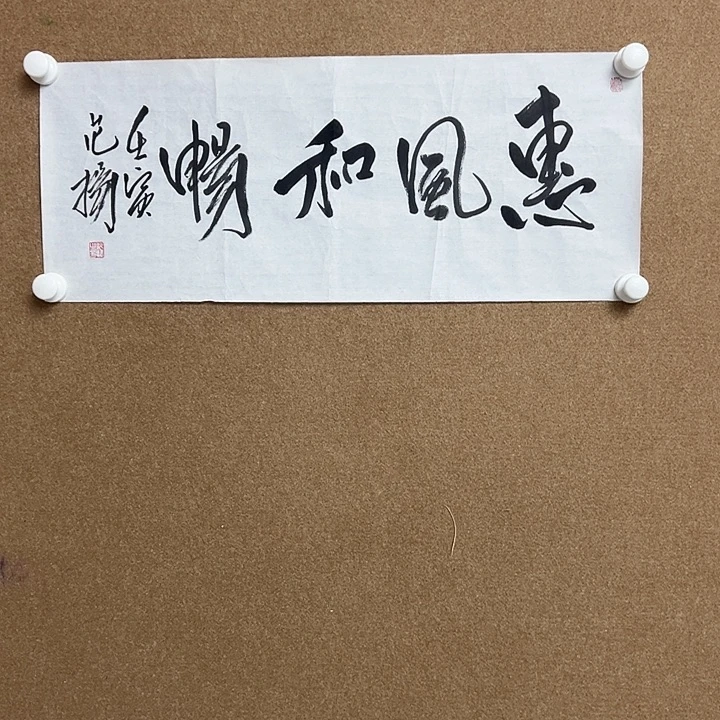 惠風和暢
壬寅
范